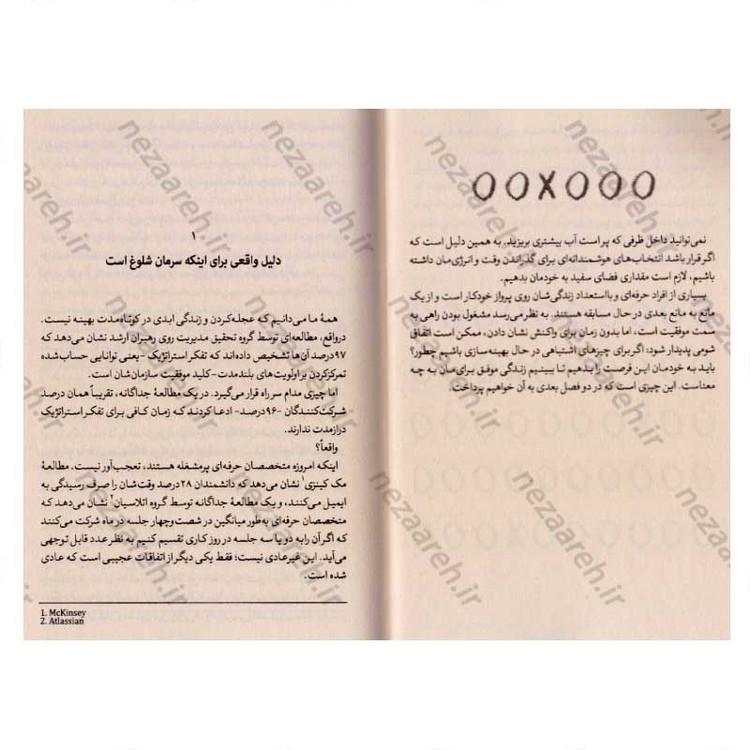 OOXOOO
نمی‌توانید داخل ظرفی که پر است آب بیشتری بریزید. به همین دلیل است که
اگر قرار باشد انتخاب‌های هوشمندانه‌ای برای گذراندن وقت و انرژی‌مان داشته
باشیم، لازم است مقداری فضای سفید به خودمان بدهیم.
بسیاری از افراد حرفه‌ای و بااستعداد زندگی‌شان روی پرواز خودکار است و از یک
مانع به مانع بعدی در حال مسابقه هستند. به نظر می‌رسد مشغول بودن راهی به
سمت موفقیت است، اما بدون زمان برای واکنش نشان دادن، ممکن است اتفاق
شومی پدیدار شود: اگر برای چیزهای اشتباهی در حال بهینه‌سازی باشیم چطور؟
باید به خودمان این فرصت را بدهیم تا ببینیم زندگی موفق برای‌مان به چه
معناست. این چیزی است که در دو فصل بعدی به آن خواهیم پرداخت.
۱
دلیل واقعی برای اینکه سرمان شلوغ است
همهٔ ما می‌دانیم که عجله‌کردن و زندگی ابدی در کوتاه‌مدت بهینه نیست.
درواقع، مطالعه‌ای توسط گروه تحقیق مدیریت روی رهبران ارشد نشان می‌دهد که
۹۷درصد آن‌ها تشخیص داده‌اند که تفکر استراتژیک -یعنی توانایی حساب‌شده
تمرکزکردن بر اولویت‌های بلندمدت- کلید موفقیت سازمان‌شان است.
اما چیزی مدام سر راه قرار می‌گیرد. در یک مطالعهٔ جداگانه، تقریباً همان درصد
شرکت‌کنندگان -۹۶درصد- ادعا کردند که زمان کافی برای تفکر استراتژیک
درازمدت ندارند.
واقعاً؟
اینکه امروزه متخصصان حرفه‌ای پرمشغله هستند، تعجب‌آور نیست. مطالعهٔ
مک کینزی۱ نشان می‌دهد که دانشمندان ۲۸درصد وقت‌شان را صرف رسیدگی به
ایمیل می‌کنند، و یک مطالعهٔ جداگانه توسط گروه اتلاسیان۲ نشان می‌دهد که
متخصصان حرفه‌ای به‌طور میانگین در شصت‌وچهار جلسه در ماه شرکت می‌کنند
که اگر آن را به دو یا سه جلسه در روز کاری تقسیم کنیم به نظر عدد قابل توجهی
می‌آید. این غیرعادی نیست؛ فقط یکی دیگر از اتفاقات عجیبی است که عادی
شده است.
1. McKinsey
2. Atlassian
nezaareh.ir
nezaareh.ir
nezaareh.ir
nezaareh.ir
nezaareh.ir
nezaareh.ir
nezaareh.ir
nezaareh.ir